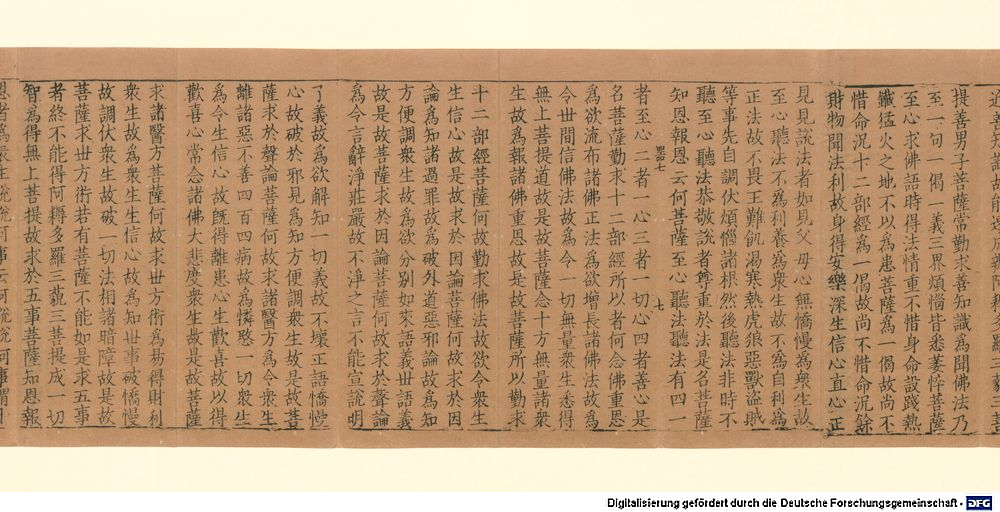 提善男子菩薩常勤求善知識為聞佛法乃
至一句一偈一義三界煩惱皆悉萎悴菩薩
至心求佛語時得注情重不惜身命設踐熱
鐵猛火之地不以為患菩薩為一偈故尚不
惜命況十二部經為一偈故尚不惜命況餘
財物聞法利故身得安樂深生信心直心正
見見說法者如見父母心無憍慢為衆生故
至心聽法不為利養為衆生故不為自利為
正法故不畏王難飢渴寒熱虎狼惡獸盜賊
等事先自調伏煩惱諸根然後聽法非時不
聽至心聽法恭敬說者尊重於法是名菩薩
知恩報恩云何菩薩至心聽法聽法有四一
七
者至心二者一心三者一切心四者善心是
名菩薩勤求十二部經所以者何念佛重恩
為欲流布諸佛正法為欲增長諸佛法故為
令世間信佛法故為令一切無量衆生悉得
無上菩提道故是故菩薩念十方無量諸衆
生故為報諸佛重恩故是故菩薩所以勤求
十二部經菩薩何故勤求佛法故欲令衆生
生信心故是故求於因論菩薩何故求於因
論為知諸過罪故為破外道惡邪論故為知
方便調衆生故為欲分別如來語義世語義
故是故菩薩求於因論菩薩何故求於聲論
為令言辭淨莊嚴故不淨之言不能宣說明
了義故為欲解知一切義故不壞正語憍慢
心故破於邪見為知方便調衆生故是故菩
薩求於聲論菩薩何故求諸醫方為令衆生
離諸惡不善四百四病故為憐愍一切衆生
為令生信心故既得離患心生歡喜故以得
歡喜心常念諸佛大悲度衆生故是故菩薩
求諸醫方菩薩何故求世方術為易得財利
衆生故為衆生生信心故為知世事破憍慢
故調伏衆生故破一切法相諸暗障故是故
菩薩求世方術若有菩薩不能如是求五事
者終不能得阿耨多羅三藐三菩提成一切
智為得無上菩提故求於五事菩薩知恩報
Digitalisierung gefördert durch die Deutsche Forschungsgemeinschaft - DFG